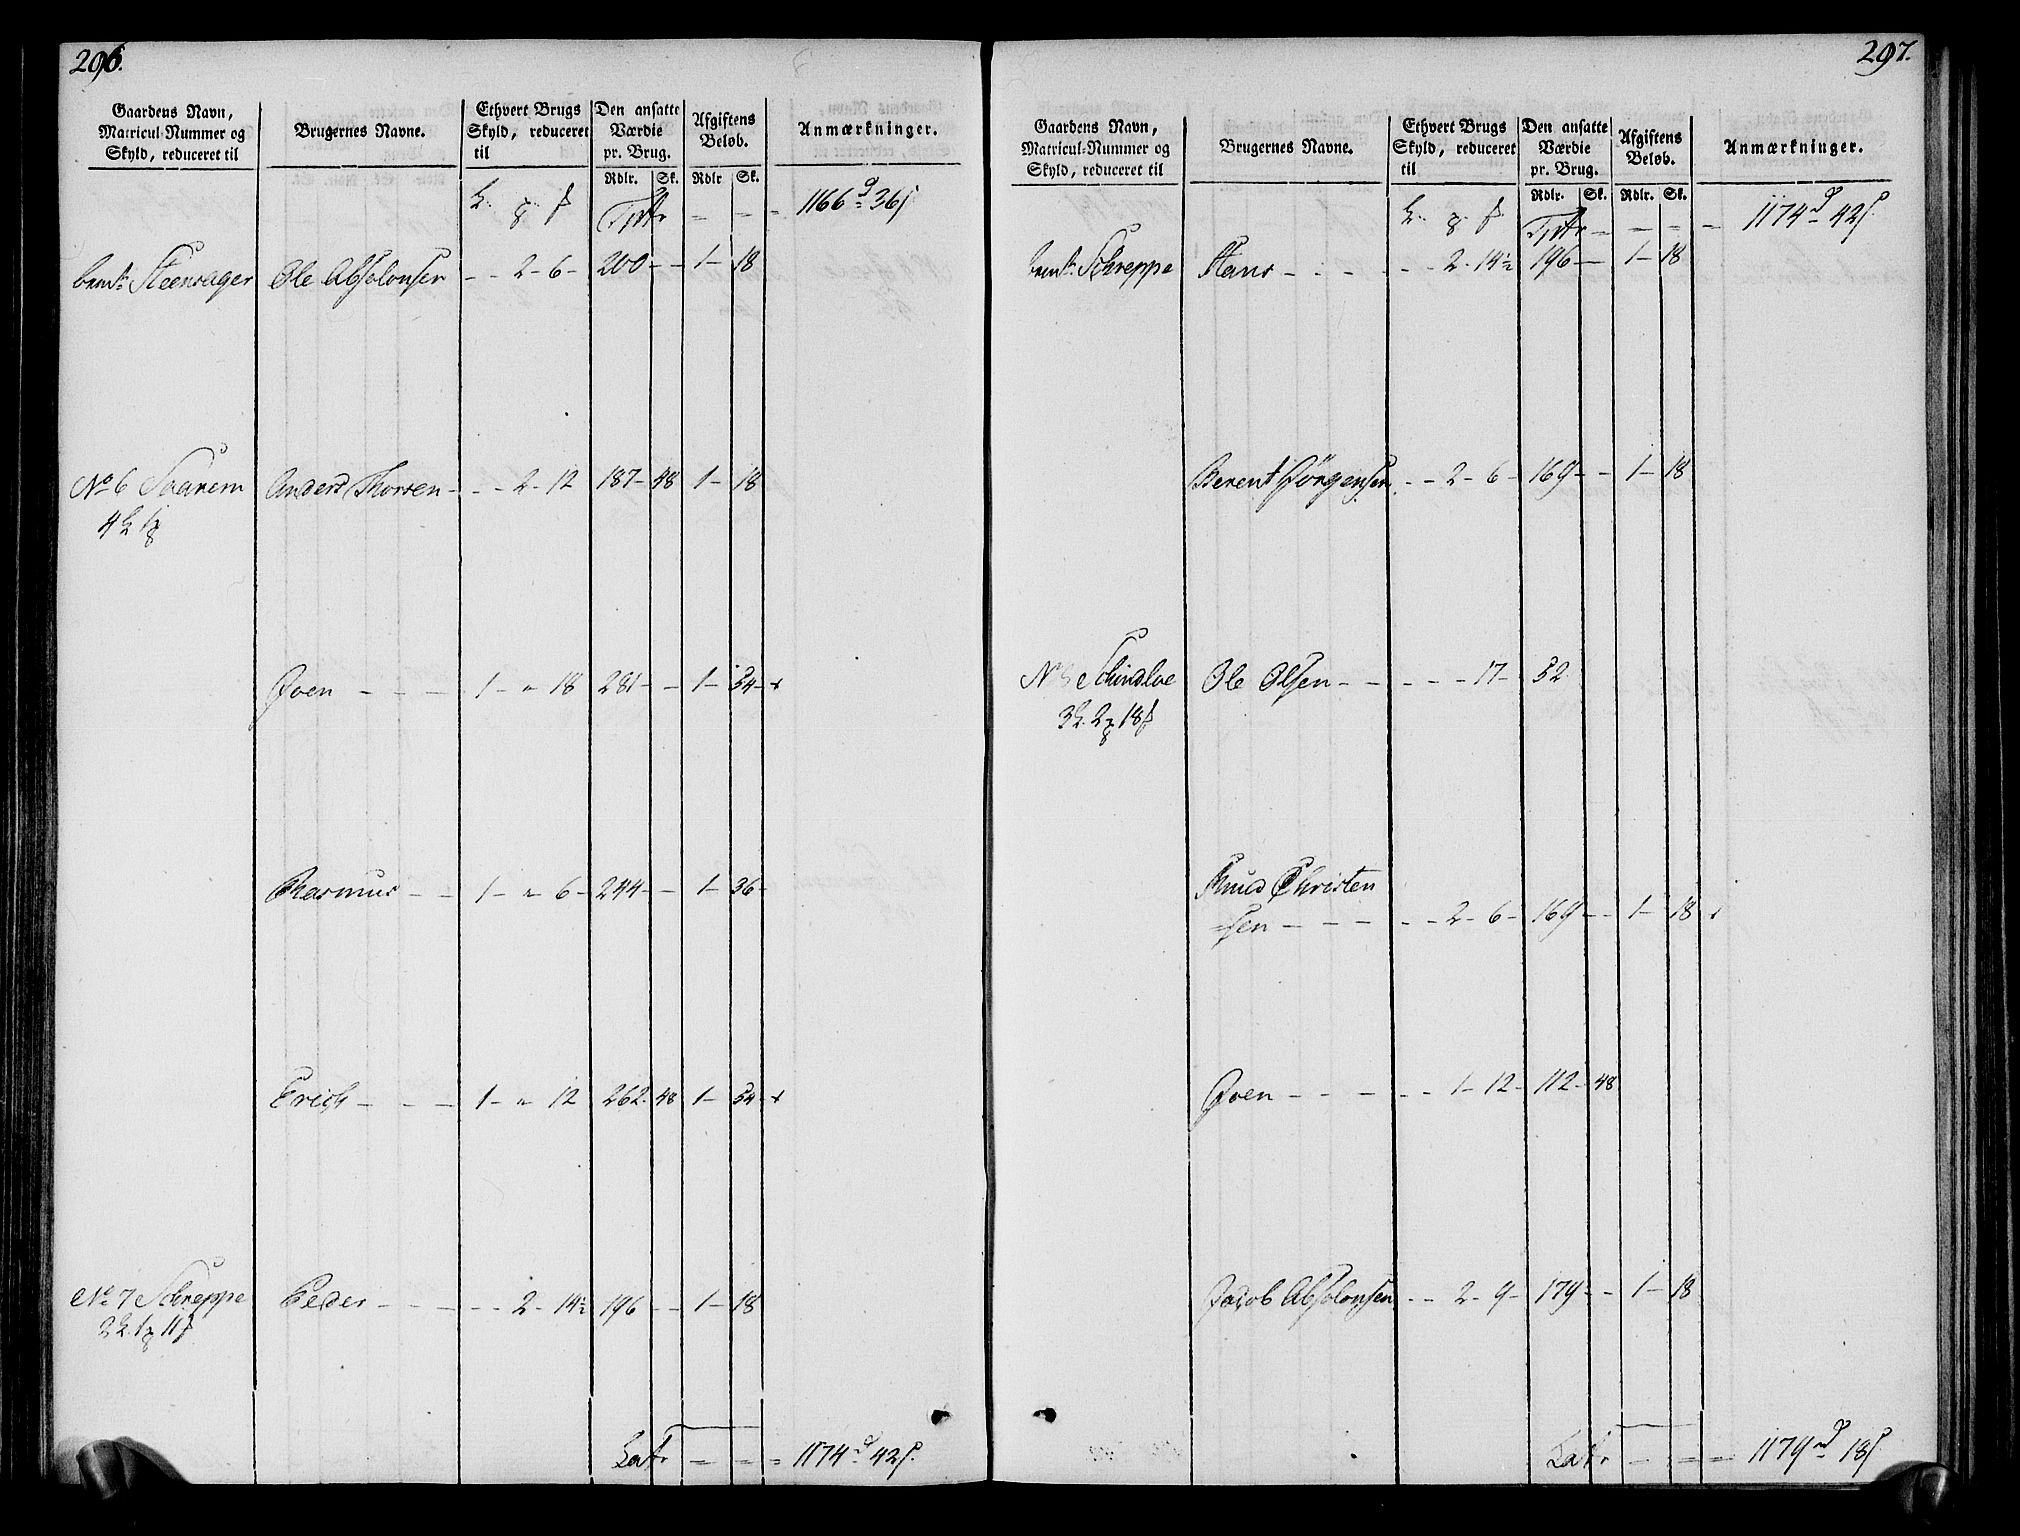 296.
Gaardens Navn, Matricul-Nummer og Skyld, reduceret til
Brugernes Navne.
Ethvert Brugs Skyld, reduceret til
Den ansatte Værdie pr. Brug.
Afgiftens Beløb.
Anmærkninger.
Rdlr. Sk. Rdlr Sk.
Tptr — — — 1166 d 36 s
Steensager Ole Absolonsen - - 2 - 6 - 200 - - 1 - 18
No 6 Saarem Anders Thorsen - - - 2 - 12 187 - 48 1 - 18
Iven - - - 1 - " 18 281 - - 1 - 54 - +
Rasmus - - 1 - " 6 - 244 - - 1 - 36 -
Erich - - - 1 - " 12 262 - 48 1 - 54 - +
No 7 Schreppe Peder - - - - - 2 - 14½ 196 - - 1 - 18
Latr = = = 1174 d 42 s.
297.
Gaardens Navn, Matricul-Nummer og Skyld, reduceret til
Brugernes Navne.
Ethvert Brugs Skyld, reduceret til
Den ansatte Værdie pr. Brug.
Afgiftens Beløb.
Anmærkninger.
Rdlr. Sk. Rdlr. Sk.
Tptr - - - - 1174 d 42 s
Schreppe Hans - - - - - - 2 - 14½ 196 - 1 - 18
Berent Jørgensen - - 2 - 6 - 169 - - 1 - 18
Ole Olsen - - - - - - 17 - 52
Knud Christen
=sen - - - - - - 2 - 6 - 169 - - 1 - 18 +
Iven - - - - - - 1 - 12 - 112 - 48
Jacob Absolonsen - - 2 - 9 - 179 - - 1 - 18
Latr - = = 1179 d 18 s